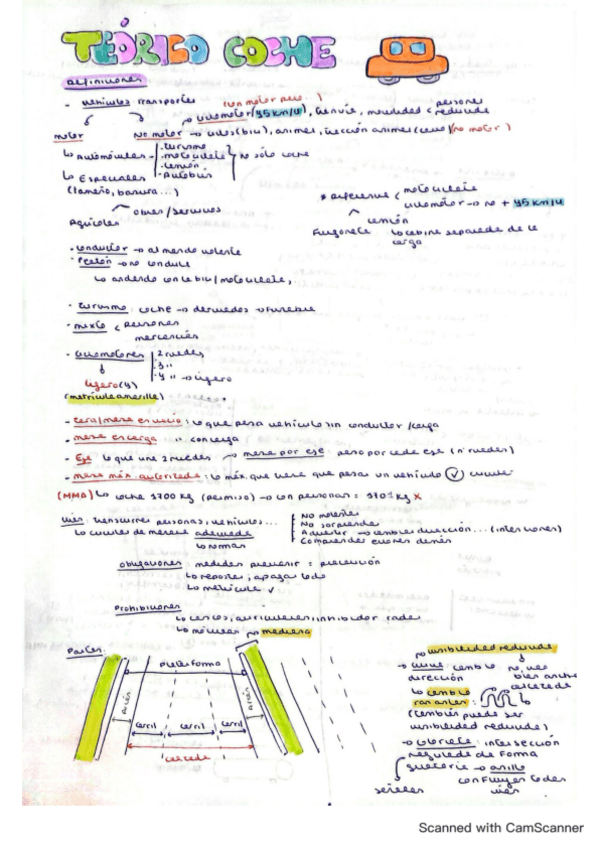 TEÓRICO COCHE
definiciones
- vehículos transportes (con motor para )
ciclomotor (45 km/h), tranvía, movilidad reducida
personas
motor
No motor → ciclos (bici), animal, tracción animal (no motor)
↳ Automóviles
· turismo
· motocicleta
· camión
· Autobús
No sólo coche
↳ Especiales
(tamaño, basura...)
obras / servicios
Agrícolas
* diferencia
motocicleta
ciclomotor → no + 45 km/h
camión
Furgoneta ↳ cabina separada de la carga
· conductor → al mando volante
· Peatón → no conduce
↳ andando con la bici / motocicleta,
· turismo: coche
· mixto
personas
mercancías
· ciclomotores
2 ruedas
3 "
4 " → ligero
ligero (4)
(matrícula amarilla)
- tara/masa en vacío: lo que pesa vehículo sin conductor / carga
- masa en carga: " con carga
- Eje: lo que une 2 ruedas → masa por eje: peso por cada eje (nº ruedas)
- masa máx. autorizada: lo máx que tiene que pesar un vehículo circular
(MMA) ↳ coche 1700 kg (permiso) → con personas = kg x
vías: personas, vehículos...
↳ circular de manera adecuada
↳ normas
No molestar
No sorprender
→ cambio dirección...
Comprender errores demás
obligaciones: medidas prevenir = precaución
↳ repostar, apaga todo
↳ matrícula ✓
Prohibiciones
↳ cascos, auriculares, inhibidor radar
↳ móviles
mediana
Partes:
plataforma
arcén
arcén
carril
carril
carril
calzada
visibilidad reducida
no ves bien
→ curva: cambio dirección
↳ cambio rasantes:
(también puede ser visibilidad reducida)
→ glorieta: intersección regulada de forma
→ anillo
señales
confluyen todas vías
Scanned with CamScanner